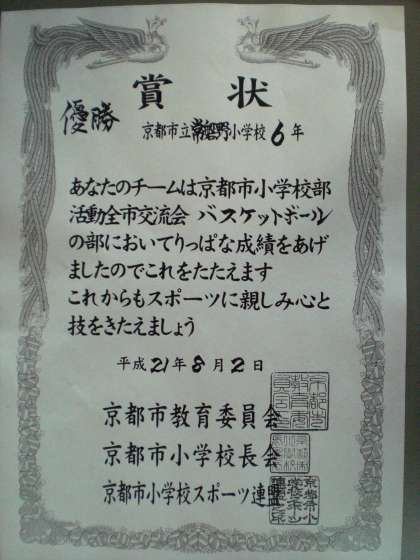 賞状
優勝
京都市立常磐野小学校6年
あなたのチームは京都市小学校部
活動全市交流会 バスケットボール
の部においてりっぱな成績をあげ
ましたのでこれをたたえます
これからもスポーツに親しみ心と
技をきたえましょう
平成21年8月2日
京都市教育委員会
京都市小学校長会
京都市小学校スポーツ連盟